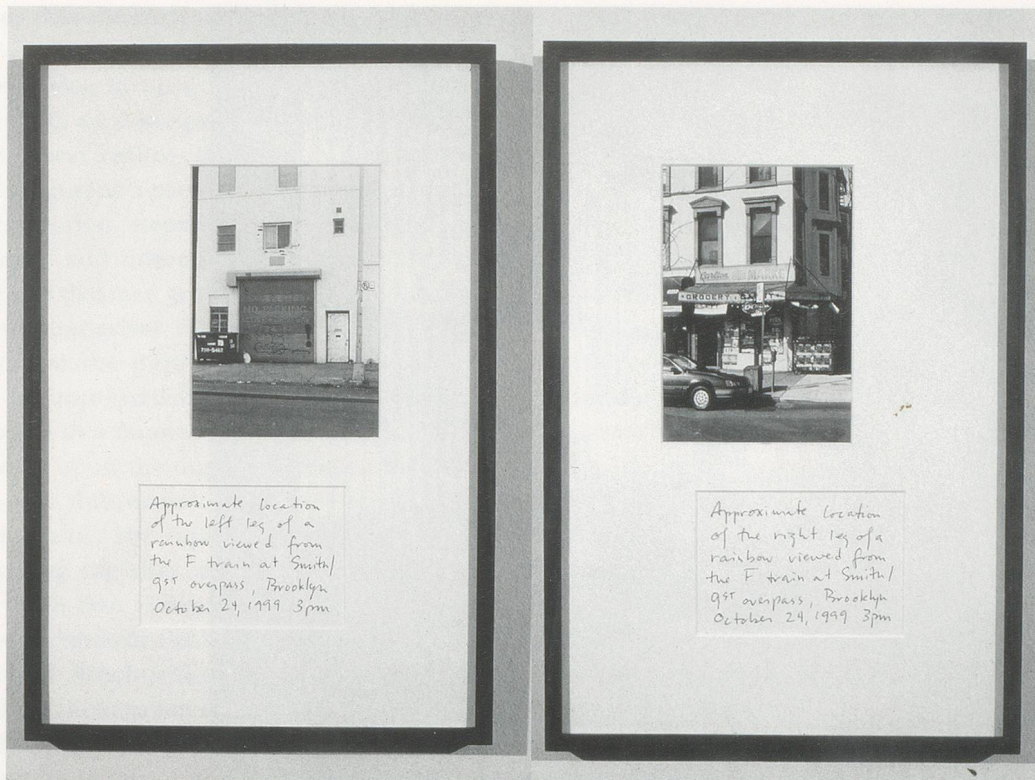 GROCERY
Approximate location
of the left leg of a
rainbow viewed from
the F train at Smith/
9ST overpass, Brooklyn
October 24, 1999 3pm
Approximate location
of the right leg of a
rainbow viewed from
the F train at Smith/
9ST overpass, Brooklyn
October 24, 1999 3pm